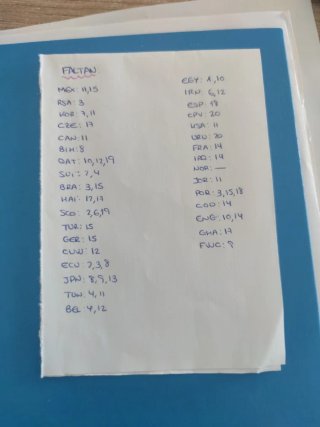 FALTAN
MEX: 11,15
RSA 3
KOR: 7,11
CZE: 17
CAN: 11
BIH: 8
QAT: 10,17,19
SUI: 2,4
BRA: 3,15
HAI: 17,17
SCO: 2,6,19
TUR: 15
GER: 15
CUW: 12
ECU: 2,3,8
JPN: 8,9,13
TUN: 4,11
BEL: 4,12
EGY: 1,10
IRN: 6,12
ESP: 18
CPV: 20
KSA: 11
URU: 20
FRA: 14
IRQ: 19
NOR: —
JOR: 11
POR: 3,15,18
COD: 14
ENG: 10,14
GHA: 17
FWC: 9